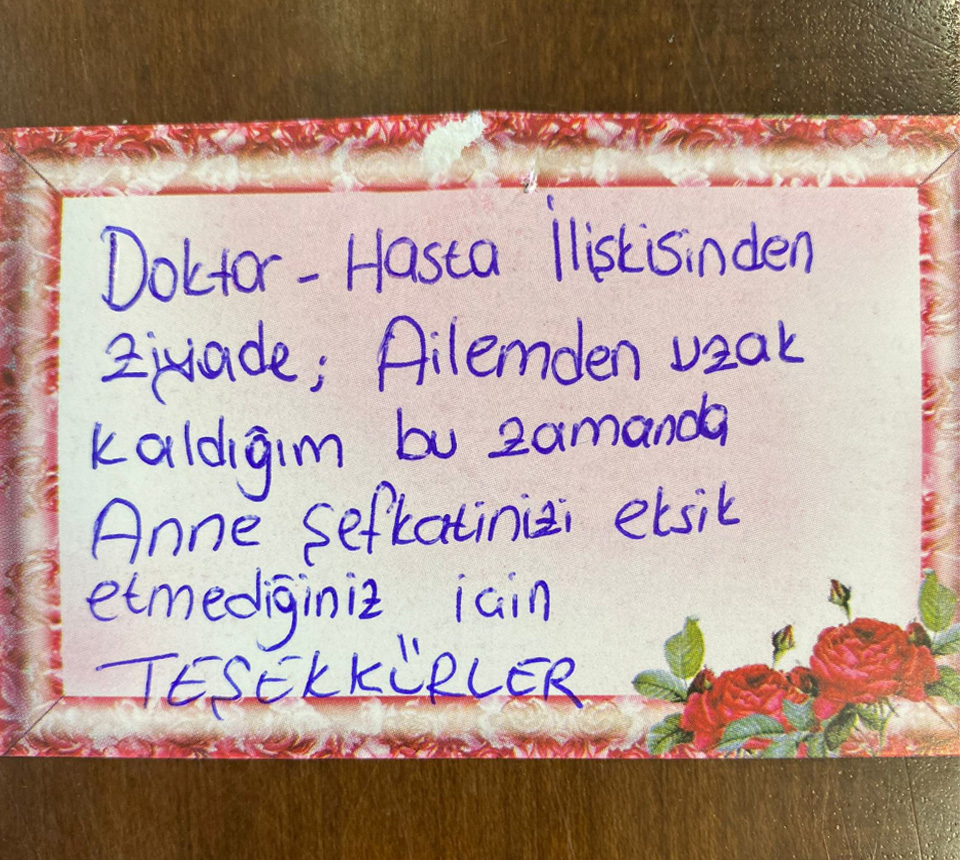 Doktor - Hasta İlişkisinden
ziyade; Ailemden uzak
kaldığım bu zamanda
Anne şefkatinizi eksik
etmediğiniz için
TEŞEKKÜRLER